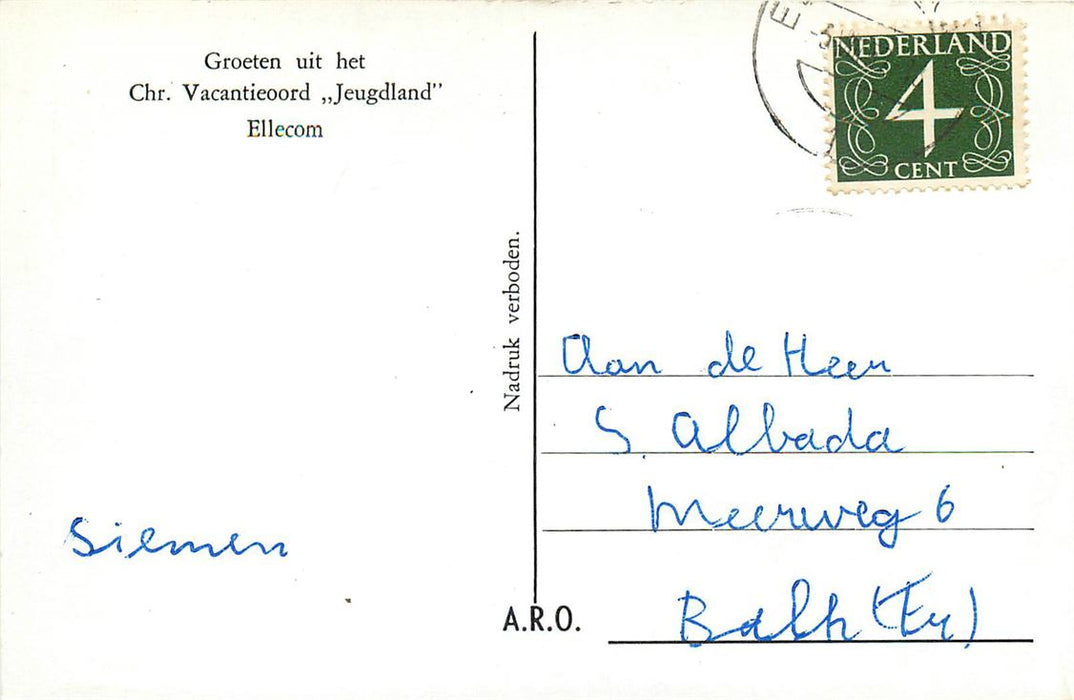 Groeten uit het
Chr. Vacantieoord „Jeugdland”
Ellecom
Siemen
Nadruk verboden.
A.R.O.
NEDERLAND
4
CENT
Aan de Heer
S. Albada
Meerweg 6
Balk (Fr)